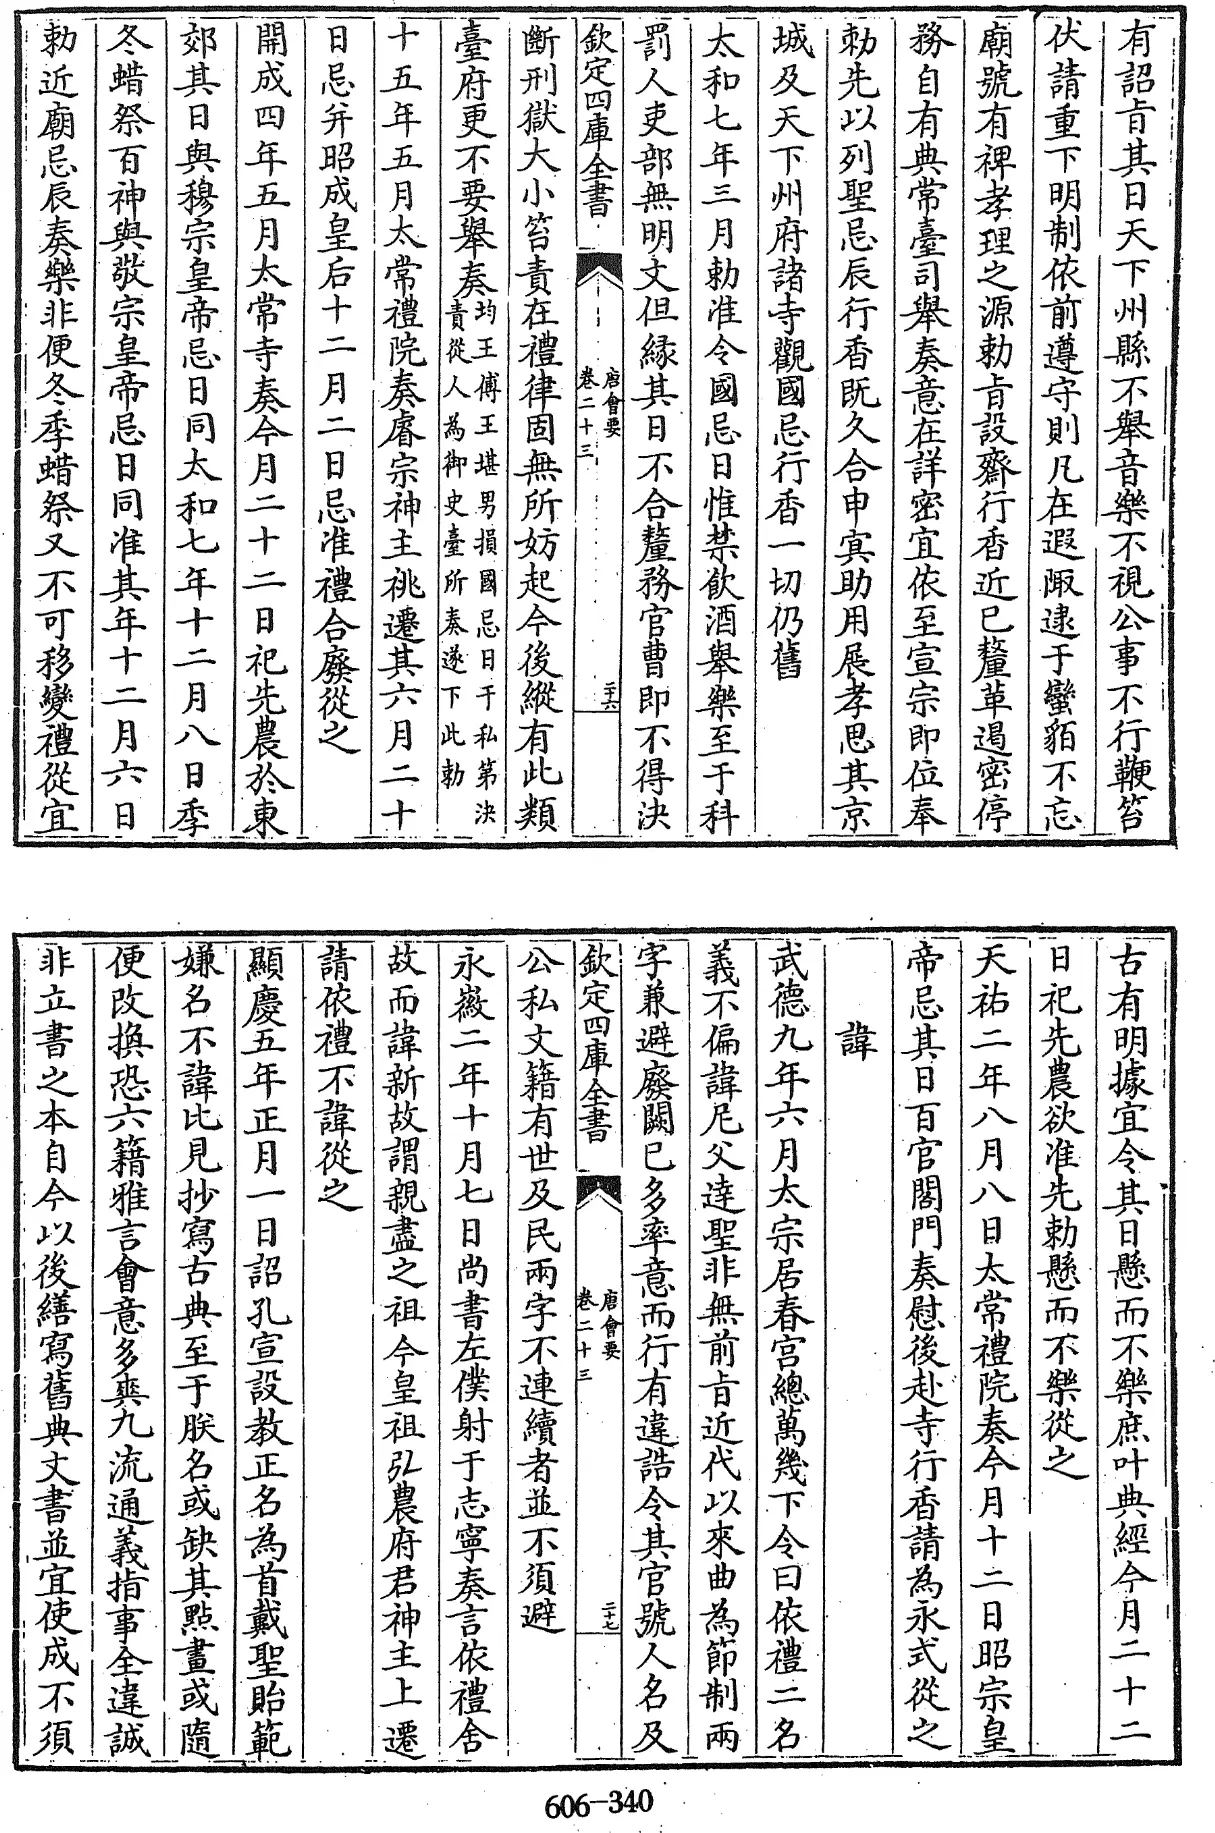 有詔旨其日天下州縣不舉音樂不視公事不行鞭笞
伏請重下明制依前遵守則凡在遐陬逮于蠻貊不忘
廟號有裨孝理之源勅旨設齋行香近已釐革遏密停
務自有典常臺司舉奏意在詳密宜依至宣宗即位奉
勅先以列聖忌辰行香既久合申寘助用展孝思其京
城及天下州府諸寺觀國忌行香一切仍舊
太和七年三月勅准令國忌日惟禁飲酒舉樂至于科
罰人吏部無明文但緣其日不合釐務官曹即不得決
欽定四庫全書
唐會要
卷二十三
二十六
斷刑獄大小笞責在禮律固無所妨起今後縱有此類
臺府更不要舉奏
均王傅王堪男損國忌日于私第決
責從人為御史臺所奏遂下此勅
十五年五月太常禮院奏睿宗神主祧遷其六月二十
日忌并昭成皇后十二月二日忌准禮合廢從之
開成四年五月太常寺奏今月二十二日祀先農於東
郊其日與穆宗皇帝忌日同太和七年十二月八日季
冬蜡祭百神與敬宗皇帝忌日同准其年十二月六日
勅近廟忌辰奏樂非便冬季蜡祭又不可移變禮從宜
古有明據宜令其日懸而不樂庶叶典經今月二十二
日祀先農欲准先勅懸而不樂從之
天祐二年八月八日太常禮院奏今月十二日昭宗皇
帝忌其日百官閤門奏慰後赴寺行香請為永式從之
諱
武德九年六月太宗居春宮總萬幾下令曰依禮二名
義不偏諱尼父達聖非無前旨近代以來曲為節制兩
字兼避廢闕已多率意而行有違誥令其官號人名及
欽定四庫全書
唐會要
卷二十三
二十七
公私文籍有世及民兩字不連續者並不須避
永徽二年十月七日尚書左僕射于志寧奏言依禮舍
故而諱新故謂親盡之祖今皇祖弘農府君神主上遷
請依禮不諱從之
顯慶五年正月一日詔孔宣設教正名為首戴聖貽範
嫌名不諱比見抄寫古典至于朕名或缺其點畫或隨
便改換恐六籍雅言會意多爽九流通義指事全違誠
非立書之本自今以後繕寫舊典文書並宜使成不須
606-340